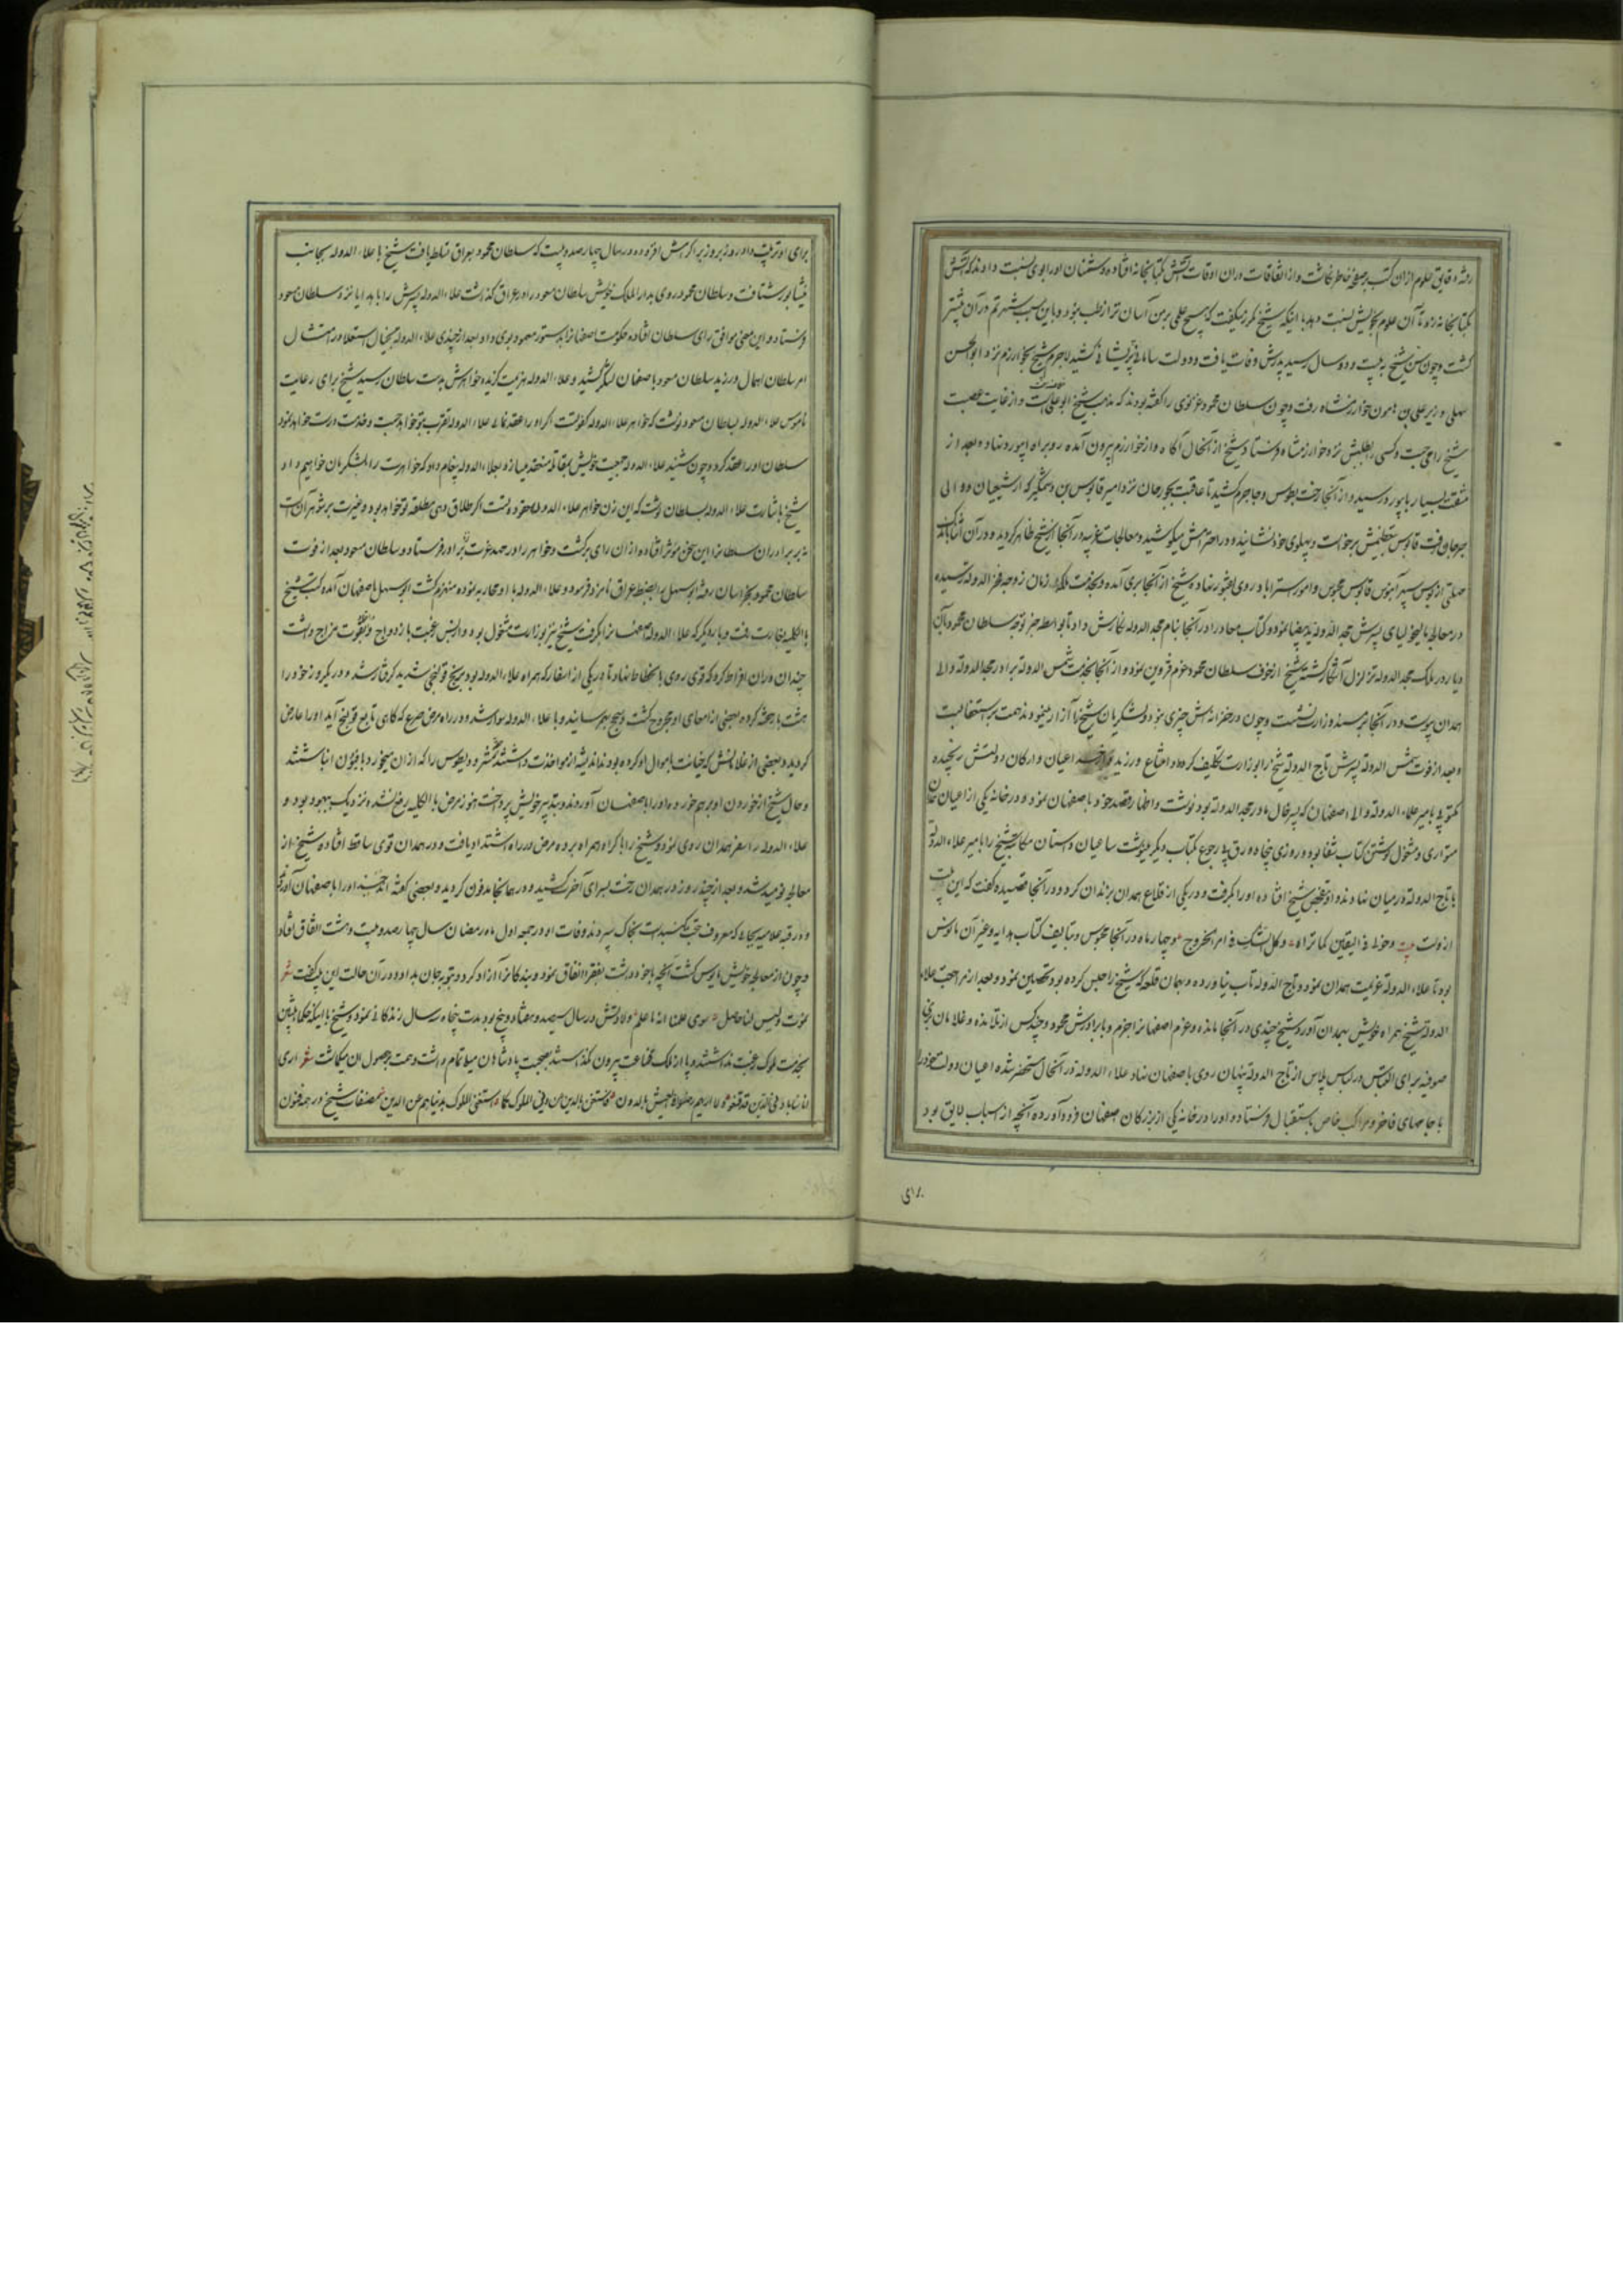 رفته دقایق علوم ازان کتب بر صفحهٔ خاطر نگاشت و از اتفاقات دران اوقات آتش بکتابخانه افتاده دشمنان او را بوی نسبت دادند که آتش
بکتابخانه زد تا آن علوم بخویش نسبت دهد با اینکه شیخ مکرر میگفت که هیچ علمی بر من آسان تر از طب نبود و باین سبب شهرتم در آن بیشتر
گشت و چون سن شیخ به بیست و دو سال رسید پدرش وفات یافت و دولت سامانی پریشانی کشید لاجرم شیخ بخوارزم نزد ابوالحسن
سهلی وزیر علی بن مامون خوارزمشاه رفت و چون سلطان محمود غزنوی را گفته بودند که مذهب شیخ ابوعلی است و از غایت عصبیت
شیخ را می جست و کسی بطلبش نزد خوارزمشاه فرستاد شیخ از آنحال آگاه و از خوارزم بیرون آمده رو براه ابیورد نهاد و بعد از
مشقت بسیار بابیورد رسید و از آنجا رخت بطوس و جاجرم کشید تا عاقبت بجرجان نزد امیر قابوس بن وشمگیر که از شیعیان و والی
جرجان رفت قابوس بتعظیمش برخواست و پهلوی خود نشانید و در احترامش میکوشید و معالجات غریبه در آنجا از شیخ ظاهر گردید و در آن اثنا باندک
مهلتی قابوس محبوس و امور استراباد روی بفتور نهاده شیخ از آنجا بری آمده و بخدمت ملکه زمان زوجه فخر الدوله رسیده
در معالجه مالیخولیای پسرش مجد الدوله ید بیضا نمود و کتاب معاد را در آنجا بنام مجد الدوله نگارش داد تا بواسطه خبر توجه سلطان محمود بآن
دیار در ملک مجد الدوله تزلزل آشکار گشته شیخ از خوف سلطان محمود عزم قزوین نمود و از آنجا بخدمت شمس الدوله برادر مجد الدوله والی
همدان پیوست و در آنجا بر مسند وزارت نشست و چون در خزانه اش چیزی نبود و لشکریان شیخ را آزار مینمودند همت بر استعفا بست
و بعد از فوت شمس الدوله پسرش تاج الدوله شیخ را بوزارت تکلیف کرده و امتناع ورزید اعیان و ارکان دولتش رنجیده
مکتوبی بامیر علاء الدوله والی اصفهان که پسر خال مادر مجد الدوله بود نوشت و اظهار قصد خود باصفهان نمود و در خانه یکی از اعیان همدان
متواری و مشغول نوشتن کتاب شفا بود و روزی پنجاه ورق بی رجوع بکتاب دیگر مینوشت ساعیان داستان مکاتبه شیخ را بامیر علاء الدوله
با تاج الدوله درمیان نهادند و او بتفحص شیخ افتاده او را بگرفت و در یکی از قلاع همدان بزندان کرد و در آنجا قصیده گفت که این بیت
ازوست بیت دخولی فی الیقین کما تراه و کل الشک فی امر الخروج و چهار ماه در آنجا محبوس و بتالیف کتاب هدایه و غیر آن مانوس
بود تا علاء الدوله عزیمت همدان نمود و تاج الدوله تاب نیاورده و بهمان قلعه که شیخ را حبس کرده بود تحصین نمود و بعد از مراجعت علاء
الدوله شیخ همراه خویش بهمدان آورد و شیخ چندی در آنجا مانده و عزم اصفهانرا جزم و با برادرش محمود و چند کس از تلامذه و غلامان بزی
صوفیه برای التباس در لباس پلاس از تاج الدوله پنهان روی باصفهان نهاد علاء الدوله در آنحال مستحضر شده اعیان دولت خود را
با جامهای فاخر و مراکب خاص باستقبال فرستاده و او را در خانه یکی از بزرکان اصفهان فرود آورده و آنچه از اسباب لایق بود
برای
برای او ترتیب داد و روز بروز بر اکرامش افزوده و در سال چهارصد و بیست که سلطان محمود بعراق تسلط یافت شیخ با علاء الدوله بجانب
نیشابور شتافت و سلطان محمود روی بدار الملک خویش سلطان مسعود را در عراق گذاشت علاء الدوله پسرش را با هدایا نزد سلطان مسعود
فرستاد و این معنی موافق رای سلطان افتاده حکومت اصفهانرا بدستور معهود بوی داد بعد از چندی علاء الدوله بخیال استقلال در امتثال
امر سلطان اهمال ورزید سلطان مسعود باصفهان لشکر کشید و علاء الدوله هزیمت گزیده خواهرش بدست سلطان رسید شیخ برای رعایت
ناموس علاء الدوله بسلطان مسعود نوشت که خواهر علاء الدوله کفو تست اگر او را عقد نمائی علاء الدوله تقرب بتو خواهد جست و خدمت درست خواهد نمود
سلطان او را عقد کرد و چون شنید علاء الدوله جمعیت خویش بمقاتله منعقد میسازد و بعلاء الدوله پیغام داد که خواهرت را بلشکریان خواهیم داد
شیخ باشارت علاء الدوله بسلطان نوشت که این زن خواهر علاء الدوله اما حرم تست اگر طلاق دهی مطلقه تو خواهد بود و غیرت بر شوهران است
نه بر برادران سلطانرا این سخن موثر افتاده ازان رای برگشت و خواهر را در مهد عزت نزد برادر فرستاد و سلطان مسعود بعد از فوت
سلطان محمود بخراسان رفته ابوسهل را بضبط عراق نامزد فرمود و علاء الدوله با او محاربه نموده منهزم گشت ابوسهل باصفهان آمده کتب شیخ
بالکلیه بغارت رفت و بار دیگر که علاء الدوله اصفهانرا بگرفت شیخ نیز بوزارت مشغول بود و از بس رغبت بازدواج و بقوت مزاج داشت
چندان دران افراط کرد که قوی روی بانحطاط نهاد تا در یکی از اسفار که همراه علاء الدوله بود برنج قولنجی شدید گرفتار شد و در یکروز خود را
هشت بار حقنه کرده بعضی از امعای او مجروح گشت و سحج بهم رسانید و با علاء الدوله سوار شد و در راه مرض صرع که گاهی تابع قولنج آید او را عارض
گردید و بعضی از غلامانش که خیانت باموال او کرده بودند اندیشه از مواخذت داشتند و دیطوس را که ازان میخورد بافیون انباشتند
و حال شیخ از خوردن او برهم خورده او را باصفهان آوردند و بتدبیر خویش پرداخت هنوز مرض بالکلیه رفع نشده و نزدیک ببهبود بود و
علاء الدوله را سفر همدان روی نمود و شیخ را باکراه همراه برده مرض در راه اشتداد یافت و در همدان قوی ساقط افتاده شیخ از
معالجه نومید شد و بعد از چند روز در همدان رخت بسرای آخرت کشید و در همانجا مدفون گردید و بعضی گفته اند جسد او را باصفهان آوردند
و در قبه علائیه بجائی که معروف گنبد است بخاک سپردند وفات او در جمعه اول ماه رمضان سال چهارصد و بیست و هشت اتفاق افتاد
و چون از معالجه خویش مایوس گشت آنچه با خود داشت بفقرا انفاق نمود و بندگانرا آزاد کرد و بتوبه جان بداد و در آن حالت این بیت گفت شعر
نموت و لیس لنا حاصل سوی علمنا انه ما علم ولادتش در سال سیصد و هفتاد و پنج بود و مدت پنجاه و سه سال زندگانی نمود و شیخ با اینکه حکماء پیشین
بخدمت ملوک رغبت نداشتند و پا از فلک قناعت بیرون نگذاشتند بصحبت پادشاهان میل تمام داشت و همت بر حصول آن میگماشت شعر اری
اناسا بادنی الدین قد قنعوا و لا اراهم رضوا فی العیش بالدون فاستغن بالدین عن دنیا الملوک کما استغنی الملوک بدنیاهم عن الدین مصنفات شیخ در همه فنون